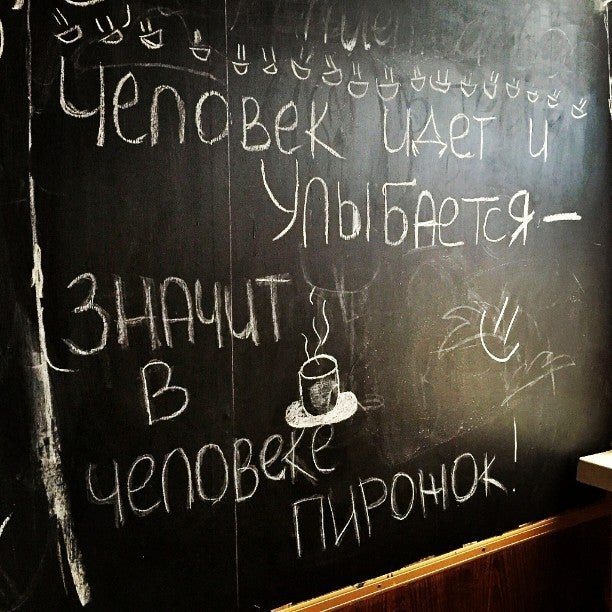 Человек идет и
Улыбается –
Значит
в
человеке
пирожок!